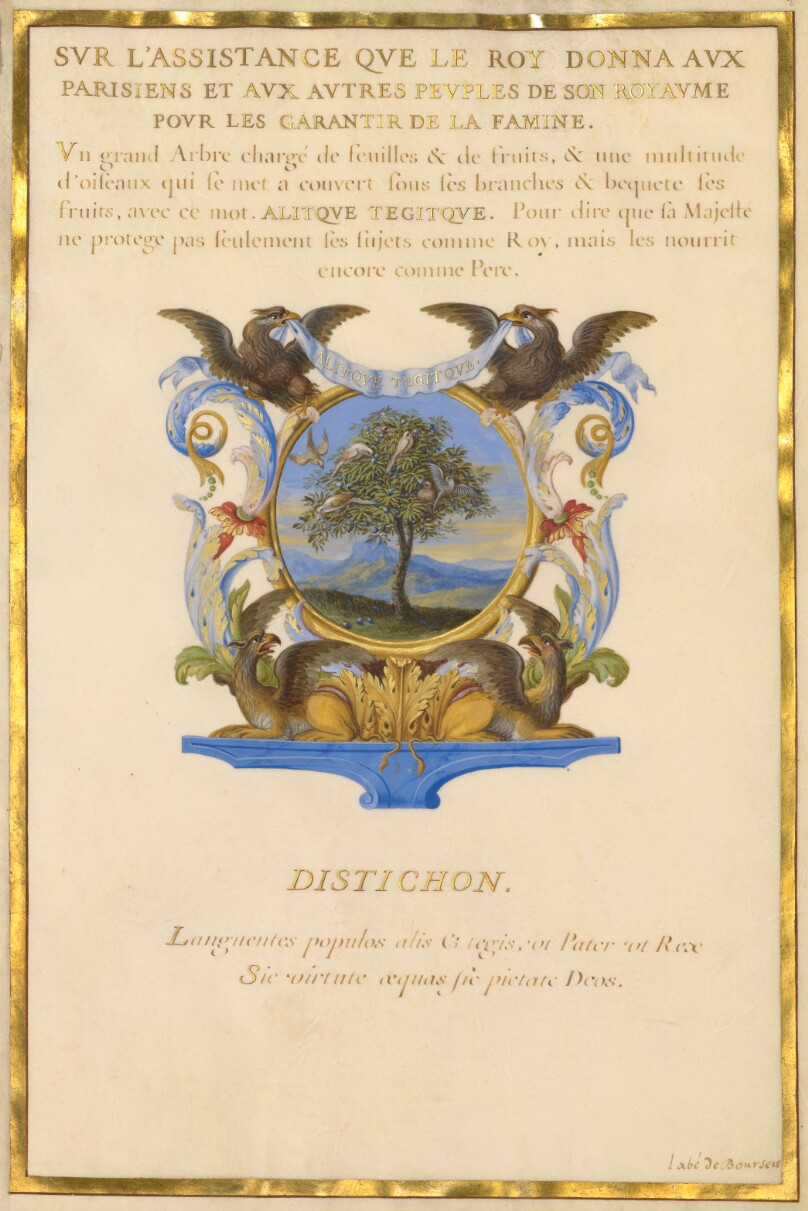 SVR L'ASSISTANCE QVE LE ROY DONNA AVX
PARISIENS ET AVX AVTRES PEVPLES DE SON ROYAVME
POVR LES GARANTIR DE LA FAMINE.
Vn grand Arbre chargé de feuilles & de fruits, & une multitude
d'oiseaux qui se met a couvert sous ses branches & bequete ses
fruits, avec ce mot. ALITQVE TEGITQVE. Pour dire que sa Majeste
ne protege pas seulement ses sujets comme Roy, mais les nourrit
encore comme Pere.
ALITQVE TEGITQVE.
DISTICHON.
Languentes populos alis & tegis, vt Pater vt Rex
Sic virtute æquas sic pietate Deos.
l'abé de Bourseis